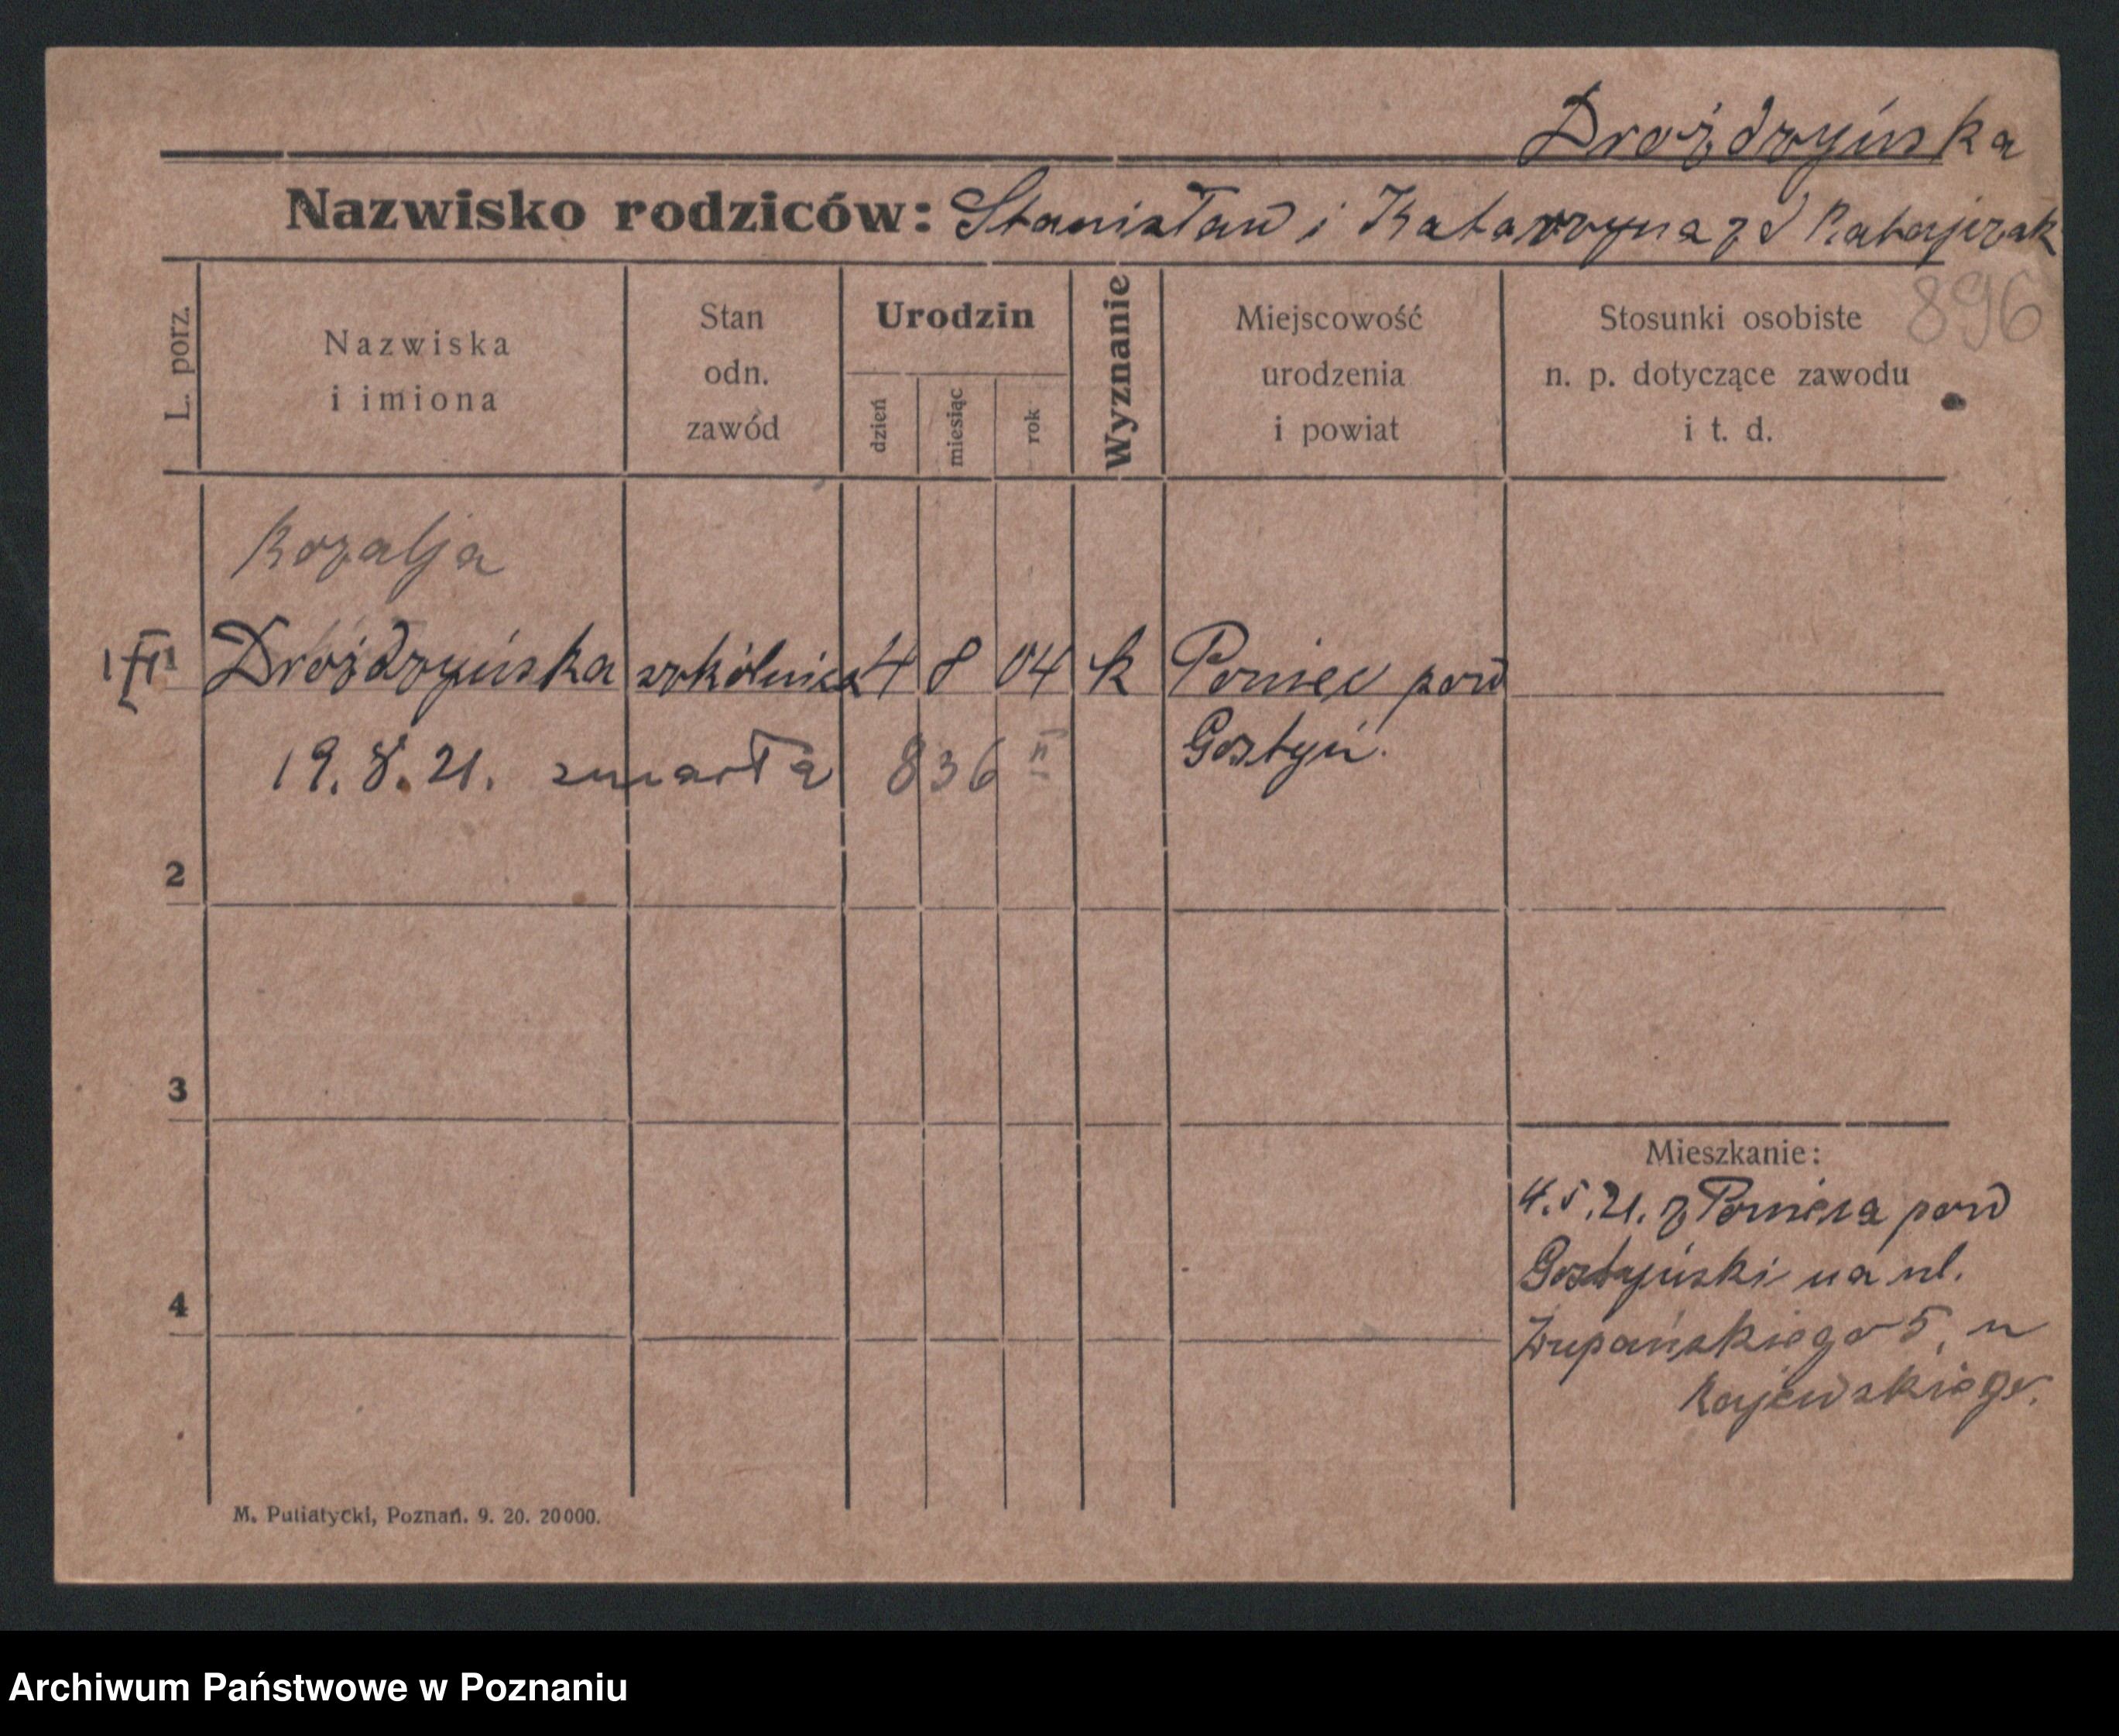 Drożdzyńska
Nazwisko rodziców: Stanisław i Katarzyna z d Ratajczak
896
L. porz.
Nazwiska
i imiona
Stan
odn.
zawód
Urodzin
dzień
miesiąc
rok
Wyznanie
Miejscowość
urodzenia
i powiat
Stosunki osobiste
n. p. dotyczące zawodu
i t. d.
Rozalja
Dróżdzyńska szkólnica 4 8 04 k Poniec pow
Gostyń.
19. 8. 21. zmarła 836 II
2
3
4
Mieszkanie:
4.5.21. z Ponieca pow
Gostyński na ul.
Żupańskiego 5, u
Rajewskiego.
M. Putiatycki, Poznań. 9. 20. 20000.
Archiwum Państwowe w Poznaniu